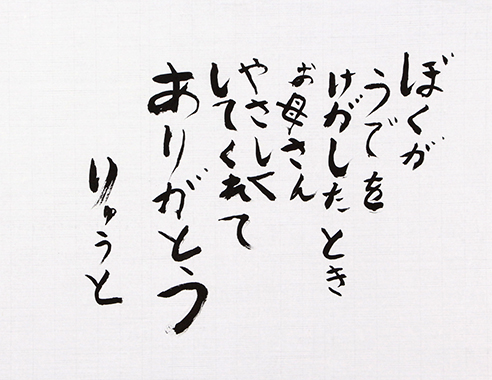 ぼくが
うでを
けがしたとき
お母さん
やさしく
してくれて
ありがとう
りゅうと